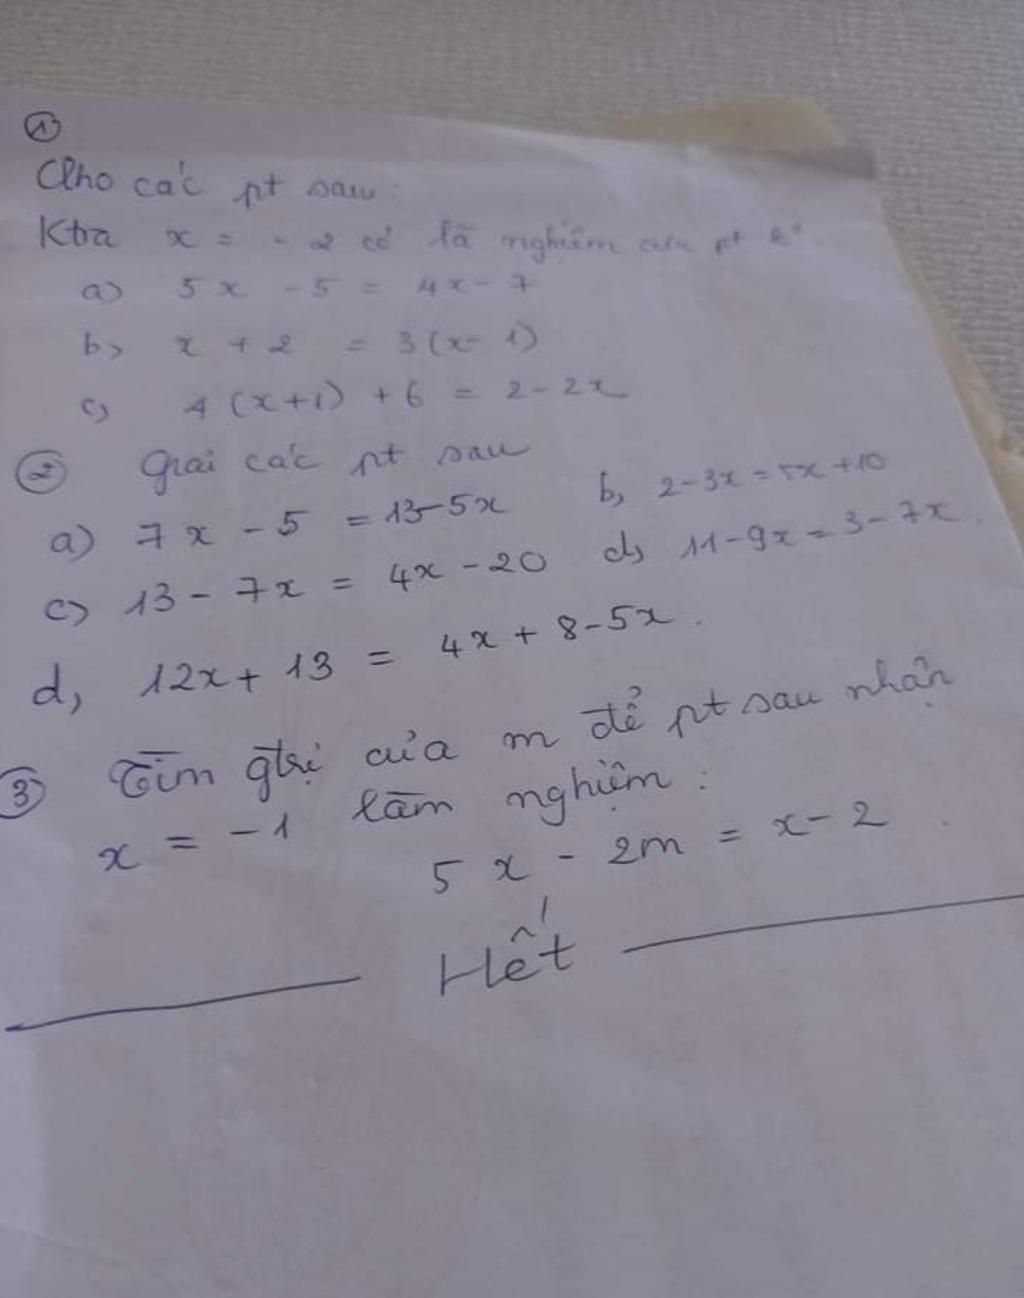 ①
Cho các pt sau:
Ktra x = - 2 có là nghiệm của pt k°
a) 5x - 5 = 4x - 7
b) x + 2 = 3(x - 1)
c) 4(x+1) + 6 = 2 - 2x
② giải các pt sau
a) 7x - 5 = 13-5x b, 2-3x = 5x+10
c) 13 - 7x = 4x - 20 d) 11-9x = 3-7x.
d, 12x + 13 = 4x + 8-5x.
③ Tìm gtrị của m để pt sau nhận
x = -1 làm nghiệm:
5x - 2m = x - 2.
Hết